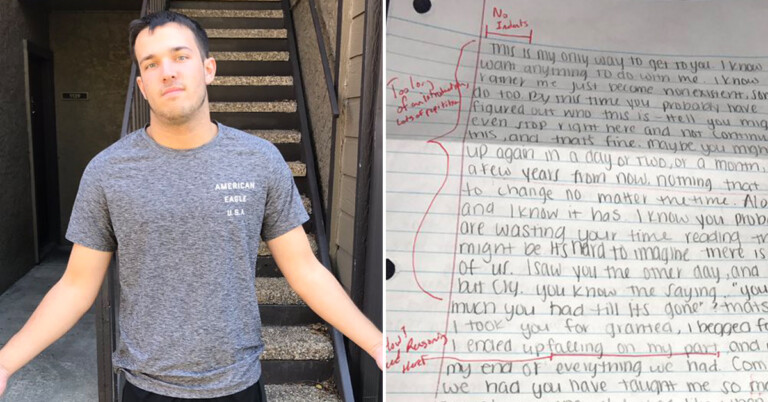 AMERICAN
EAGLE
U.S.A
No
Indents
This is my only way to get to you. I know
want anything to do with me. I know
Too long
of an introduction,
Lots of repetition
rather me just become nonexistent, som
do too. By this time you probably have
figured out who this is - Hell you migh
even stop right here and not continu
this, and that's fine. maybe you migh
up again in a day or two, or a month
a few years from now. nothing that
to change no matter the time. Alo
and I know it has I know you prob
are wasting your time reading th
might be it's hard to imagine there is
of us. I saw you the other day, and
but you know the saying, "you
much you had till its gone", thats
I took you for granted, I begged fo
I ended up failing on my part, and
Reasoning
Here!
my end of everything we had. Com
we had you have taught me so m